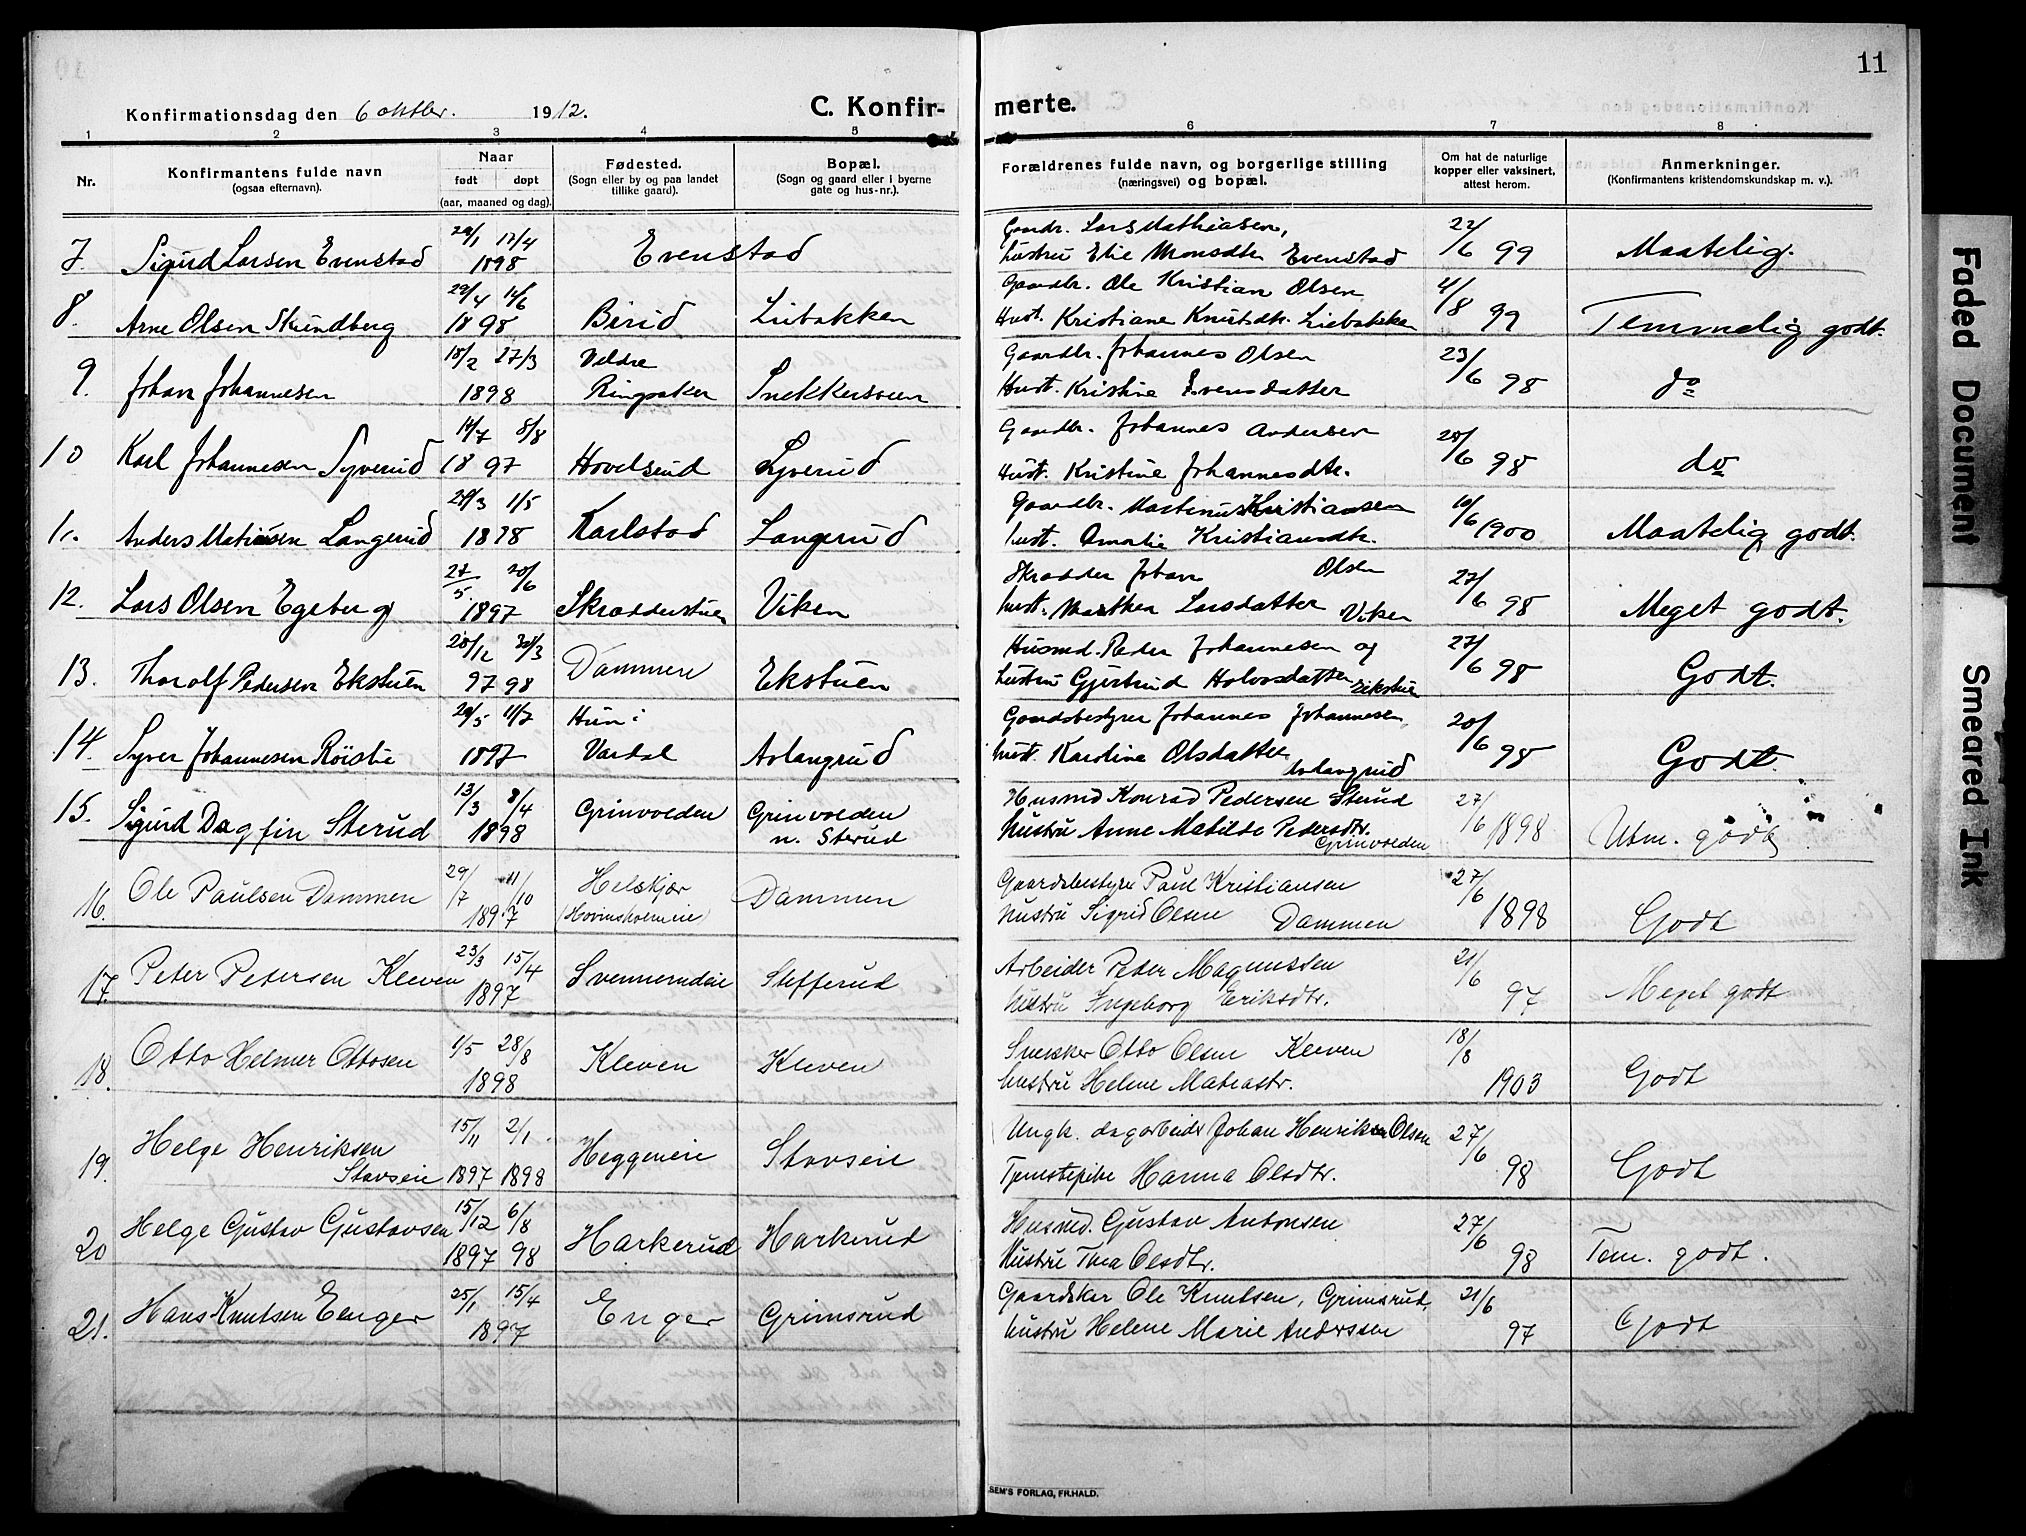 11
Konfirmationsdag den 6 oktbr. 1912. C. Konfir- merte.
1 2 3 4 5 6 7 8
Nr.
Konfirmantens fulde navn
(ogsaa efternavn).
Naar
født døpt
(aar, maaned og dag).
Fødested.
(Sogn eller by og paa landet
tillike gaard).
Bopæl.
(Sogn og gaard eller i byerne
gate og hus-nr.).
Forældrenes fulde navn, og borgerlige stilling
(næringsvei) og bopæl.
Om hat de naturlige
kopper eller vaksinert,
attest herom.
Anmerkninger.
(Konfirmantens kristendomskundskap m. v.).
Gaardr. Lars Mathiasen,
7. Sigurd Larsen Evenstad 1898 Evenstad hustru Elie Monsdtr Evenstad 22/6 99 Maatelig.
29/4 14/6 Gaardbr. Ole Kristian Olsen
8. Arne Olsen Skundberg 1898 Birid Liebakken Hust. Kristiane Knutsdtr. Liebakken 4/8 99 Temmelig godt.
18/2 27/3 Veldre Gaardbr. Johannes Olsen
9. Johan Johannesen 1898 Ringsaker Snekkersveen Hust. Kristine Evensdatter 23/6 98 do
14/7 8/8 Gaardbr. Johannes Andersen
10 Karl Johannesen Syverud 1897 Hovelsrud Syverud Hust. Kristine Johannesdtr. 28/6 98 do
29/3 1/5 Gaardbr. Martinus Kristiansen
11. Anders Matiasen Langerud 1898 Karlstad Langerud hust. Amalie Kristiansdtr. 19/6 1900 Maatelig godt.
27/5 20/6 Skrædder Johan Olsen
12. Lars Olsen Egeberg 1897 Skrædderstuen Viken hust. Marthea Larsdatter Viken 27/6 98 Meget godt.
28/12 30/3 Husmd. Peder Johannesen og
13. Thorolf Pedersen Ekstuen 97 98 Dammen Ekstuen hustru Gjertrud Halvorsdatter Ekstuen 27/6 98 Godt.
29/5 11/7 Hun i Gaardsbestyrer Johannes Johannesen
14. Syver Johannesen Røistie 1897 Vardal Avlangrud hust. Karoline Olsdatter Avlangrud 20/6 98 Godt.
13/3 8/4 Husmd Konrad Pedersen Sterud
15. Sigurd Dagfin Sterud 1898 Grinvolden Grinvolden n. Sterud hustru Anne Matilde Pedersdtr. Grinvolden 27/6 1898 Utm. godt
29/7 11/10 Helskjær Gaardsbestyrer Paul Kristiansen
16. Ole Paulsen Dammen 1897 (Hovinsholmeie) Dammen hustru Sigrid Olsen Dammen 27/6 1898 Godt
23/3 15/4 Arbeider Peder Magnussen
17. Peter Petersen Kleven 1897 Svennerudeie Stefferud hustru Ingeborg Eriksdtr. 21/6 97 Meget godt
1/5 28/8 Snekker Otto Olsen Kleven
18. Otto Helmer Ottosen 1898 Kleven Kleven hustru Helene Mateastr. 18/8 1903 Godt
15/11 2/1 Ungk. dagarbeider Johan Henriksen Olsen
19. Helge Henriksen Stavseie 1897 1898 Heggeneie Stavseie Tjenestepike Hanna Olsdtr. 27/6 98 Godt
15/12 6/8 Husmd. Gustav Antonsen
20 Helge Gustav Gustavsen 1897 98 Harkerud Harkerud hustru Thea Olsdtr. 27/6 98 Tem. godt.
25/1 15/4 Gaardskar Ole Knutsen, Grimsrud,
21. Hans Knutsen Enger 1897 Enger Grimsrud hustru Helene Marie Anderssen 21/6 97 Godt
SEM'S FORLAG, FR.HALD.
Faded Document
Smeared Ink